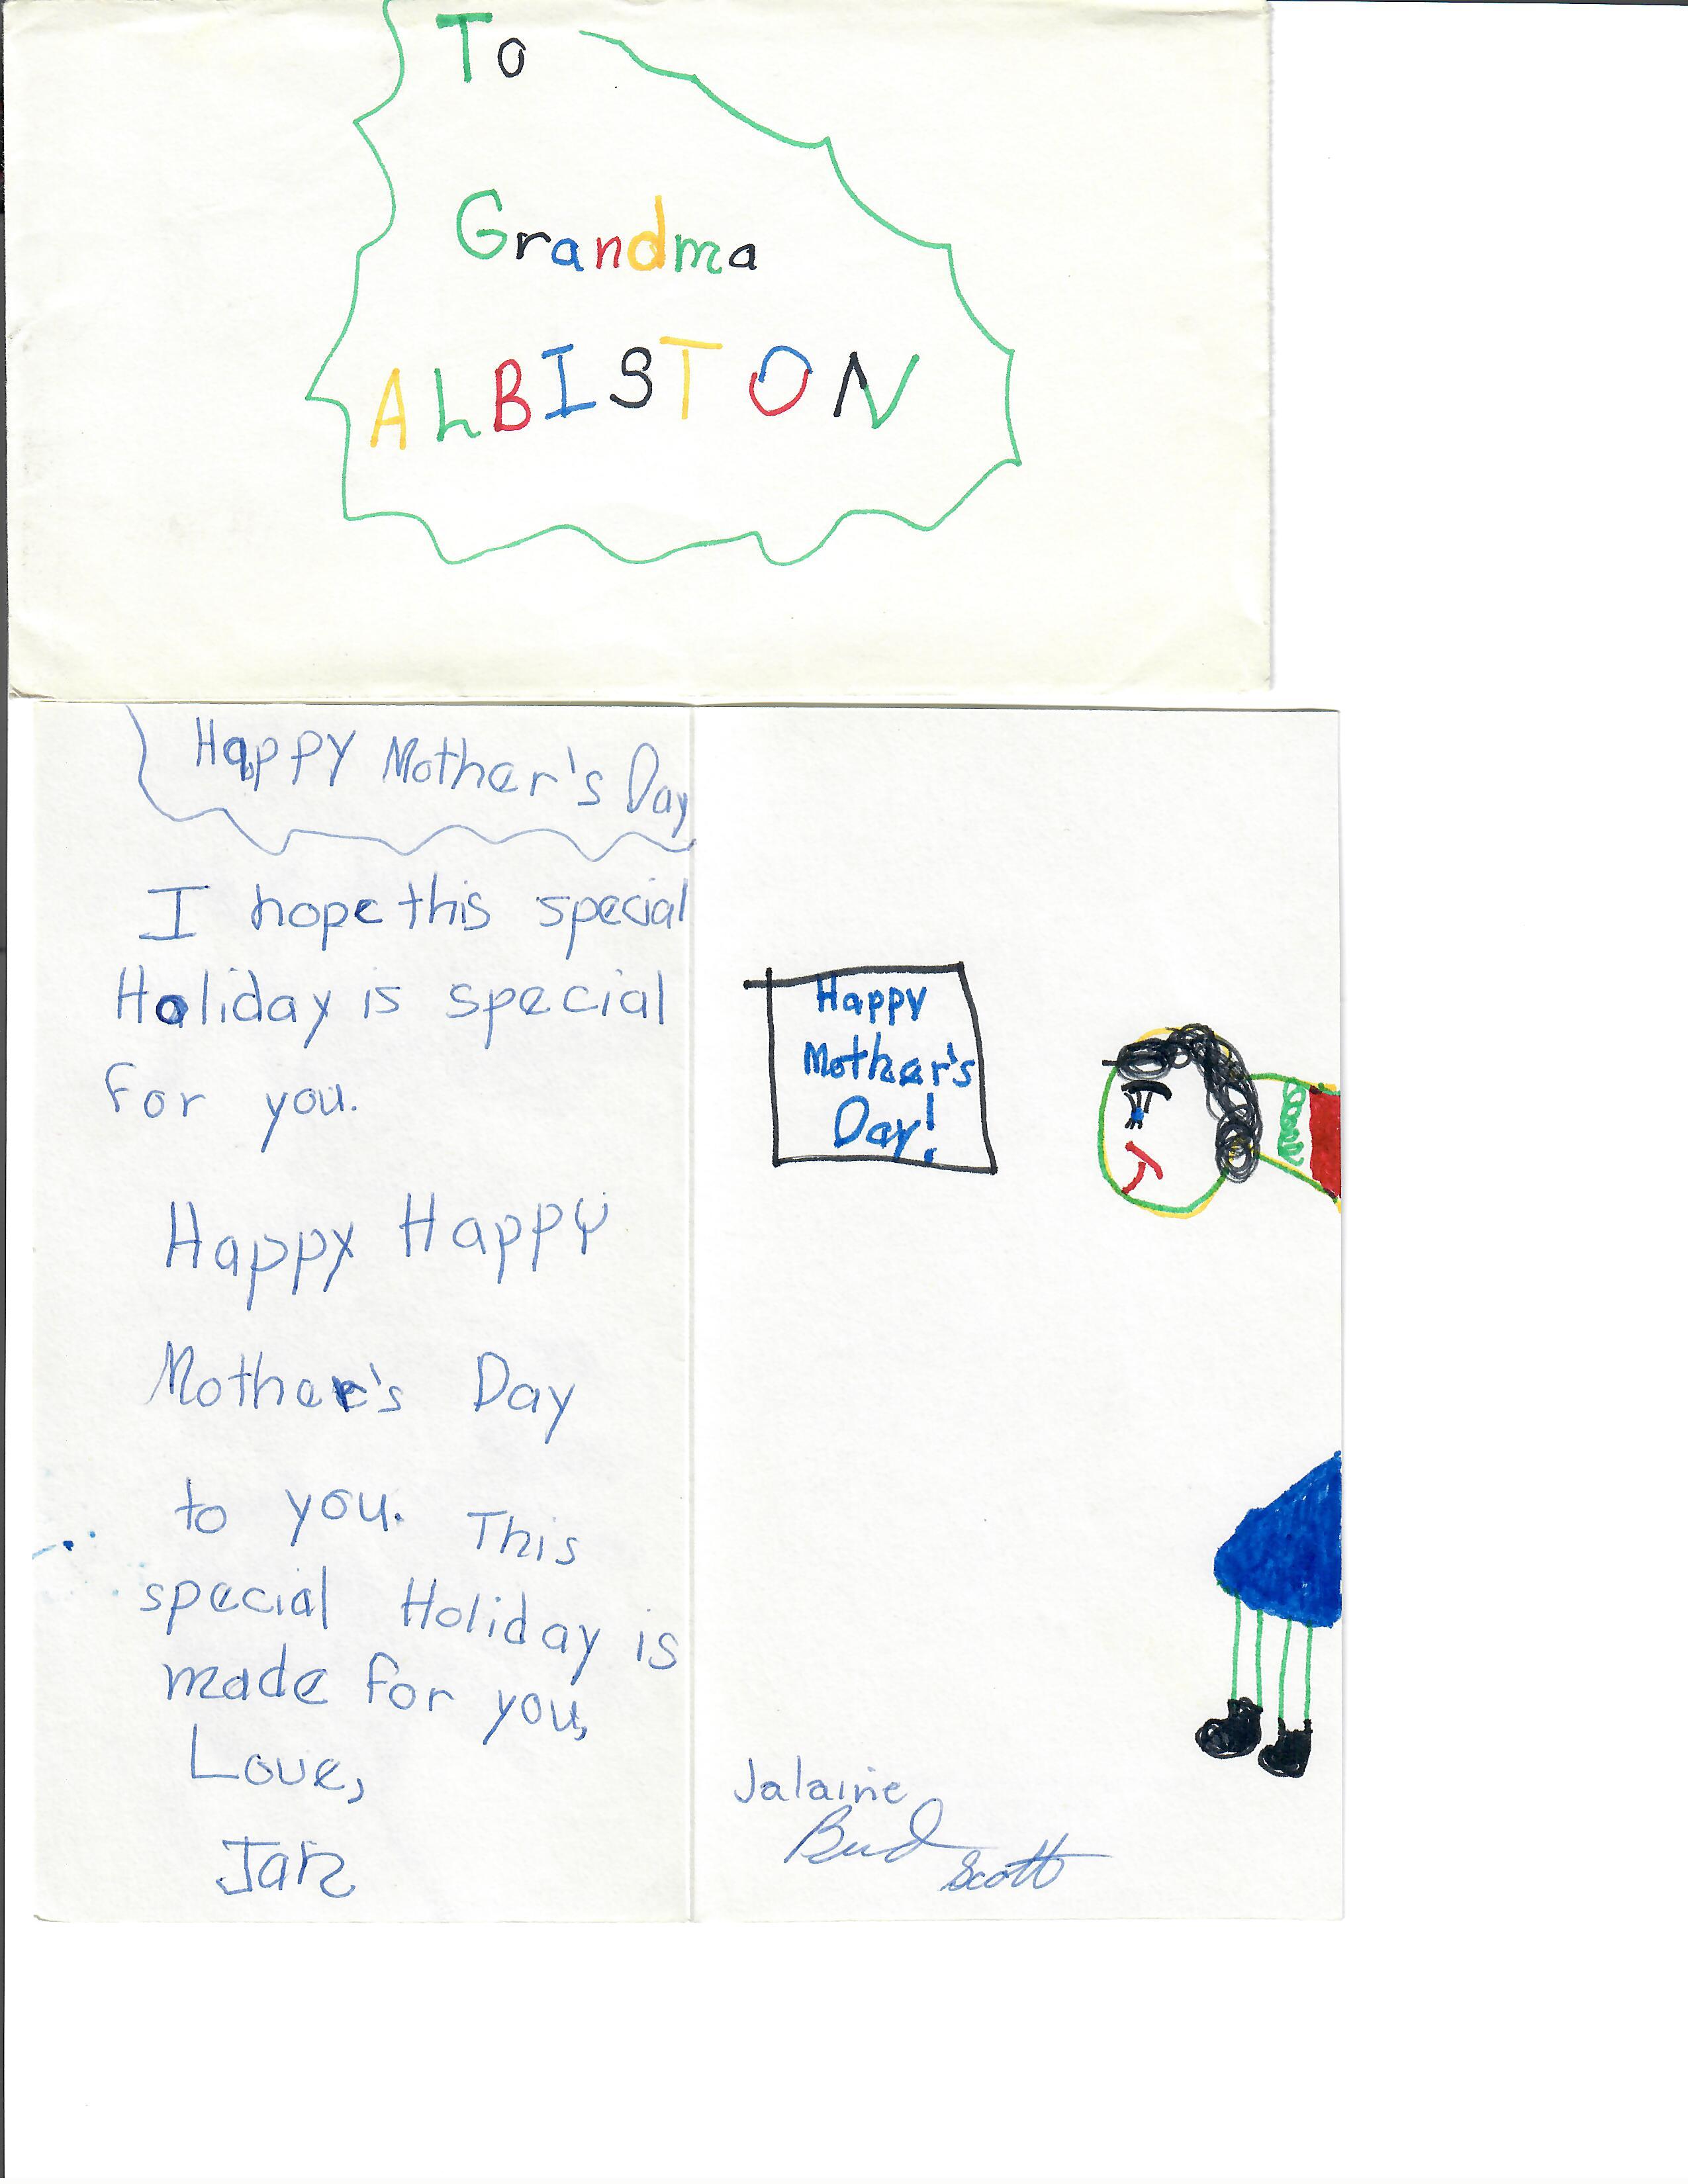 To
Grandma
ALBISTON
Happy Mother's Day
I hope this special
Holiday is special
for you.
Happy Happy
Mother's Day
to you. This
special Holiday is
made for you,
Love,
Jan
Happy
Mother's
Day!
Jalaine
Bud
Scott